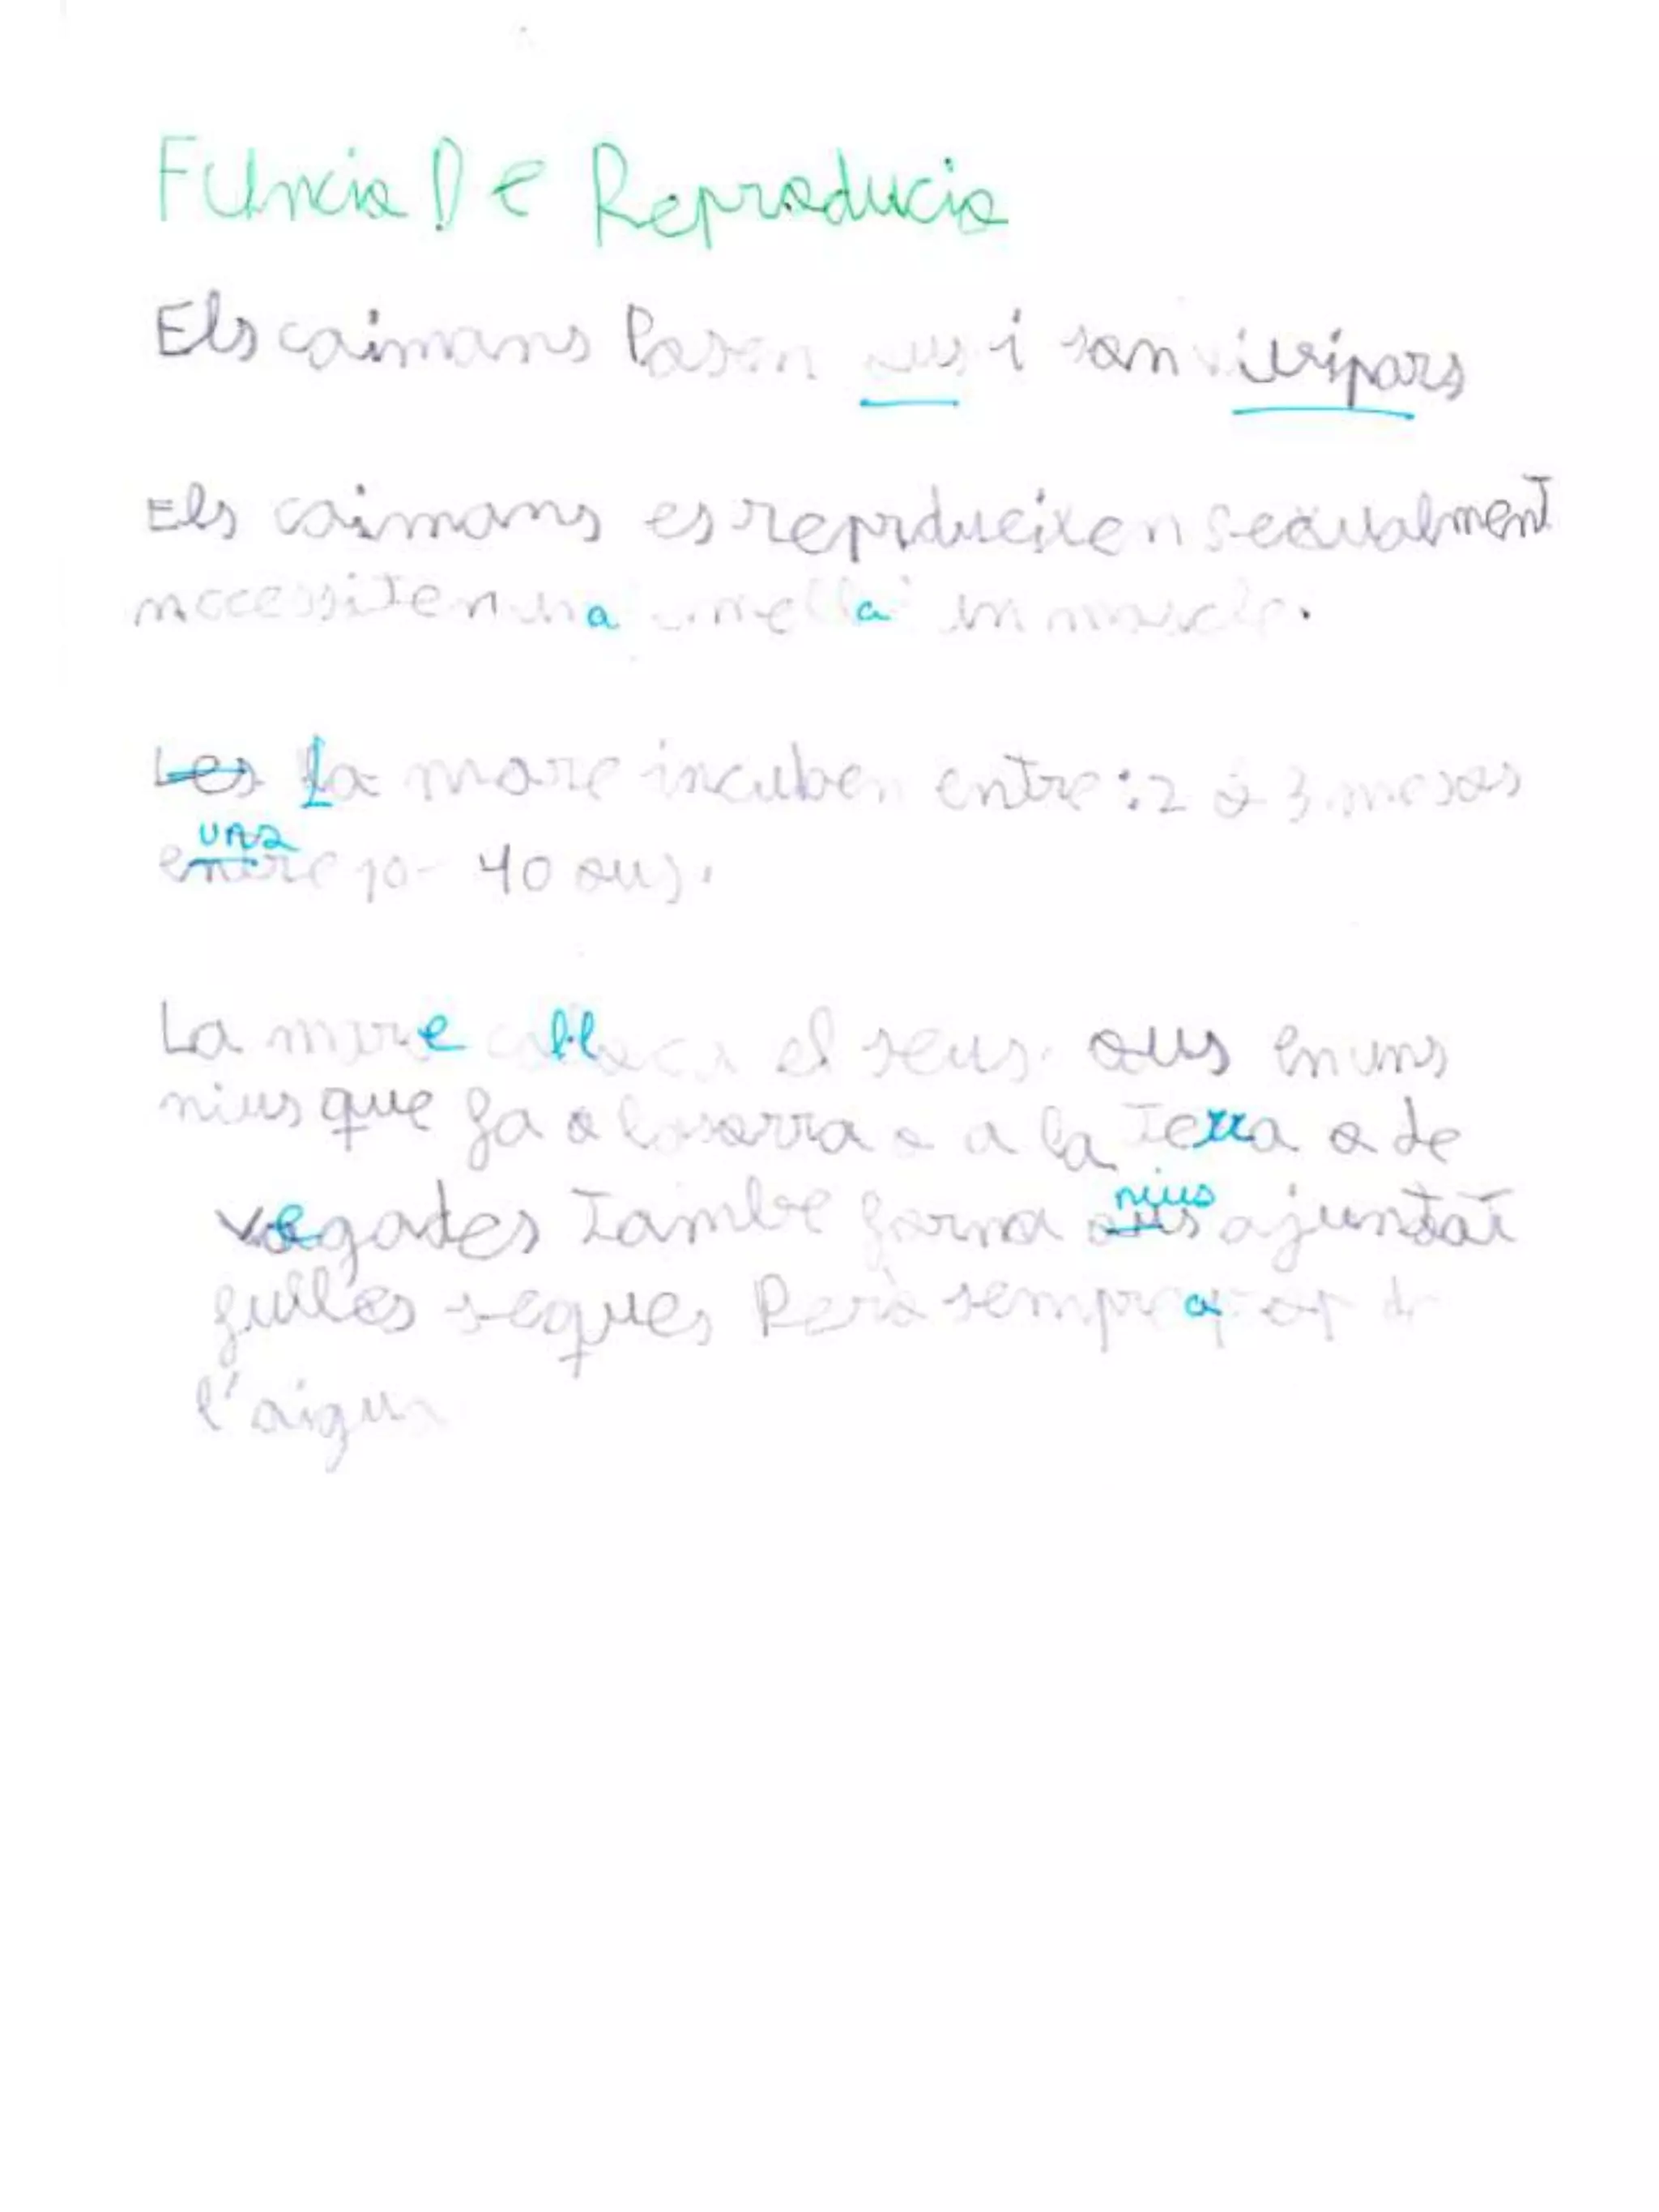 Funcio De Reproducio
Els caimans Posen ous i son vivipars
Els caimans es reprdueixen sexualment
necessiten una femella i un mascle.
Les La mare incuben entre: 2 o 3 mesos
una
entre 10 - 40 ous.
La mare col·loca el seus ous en uns
nius que fa a la sorra o a la Terra o de
vegades Tambe forma nius
ous ajuntat
fulles seques Però sempre a
l'aigua